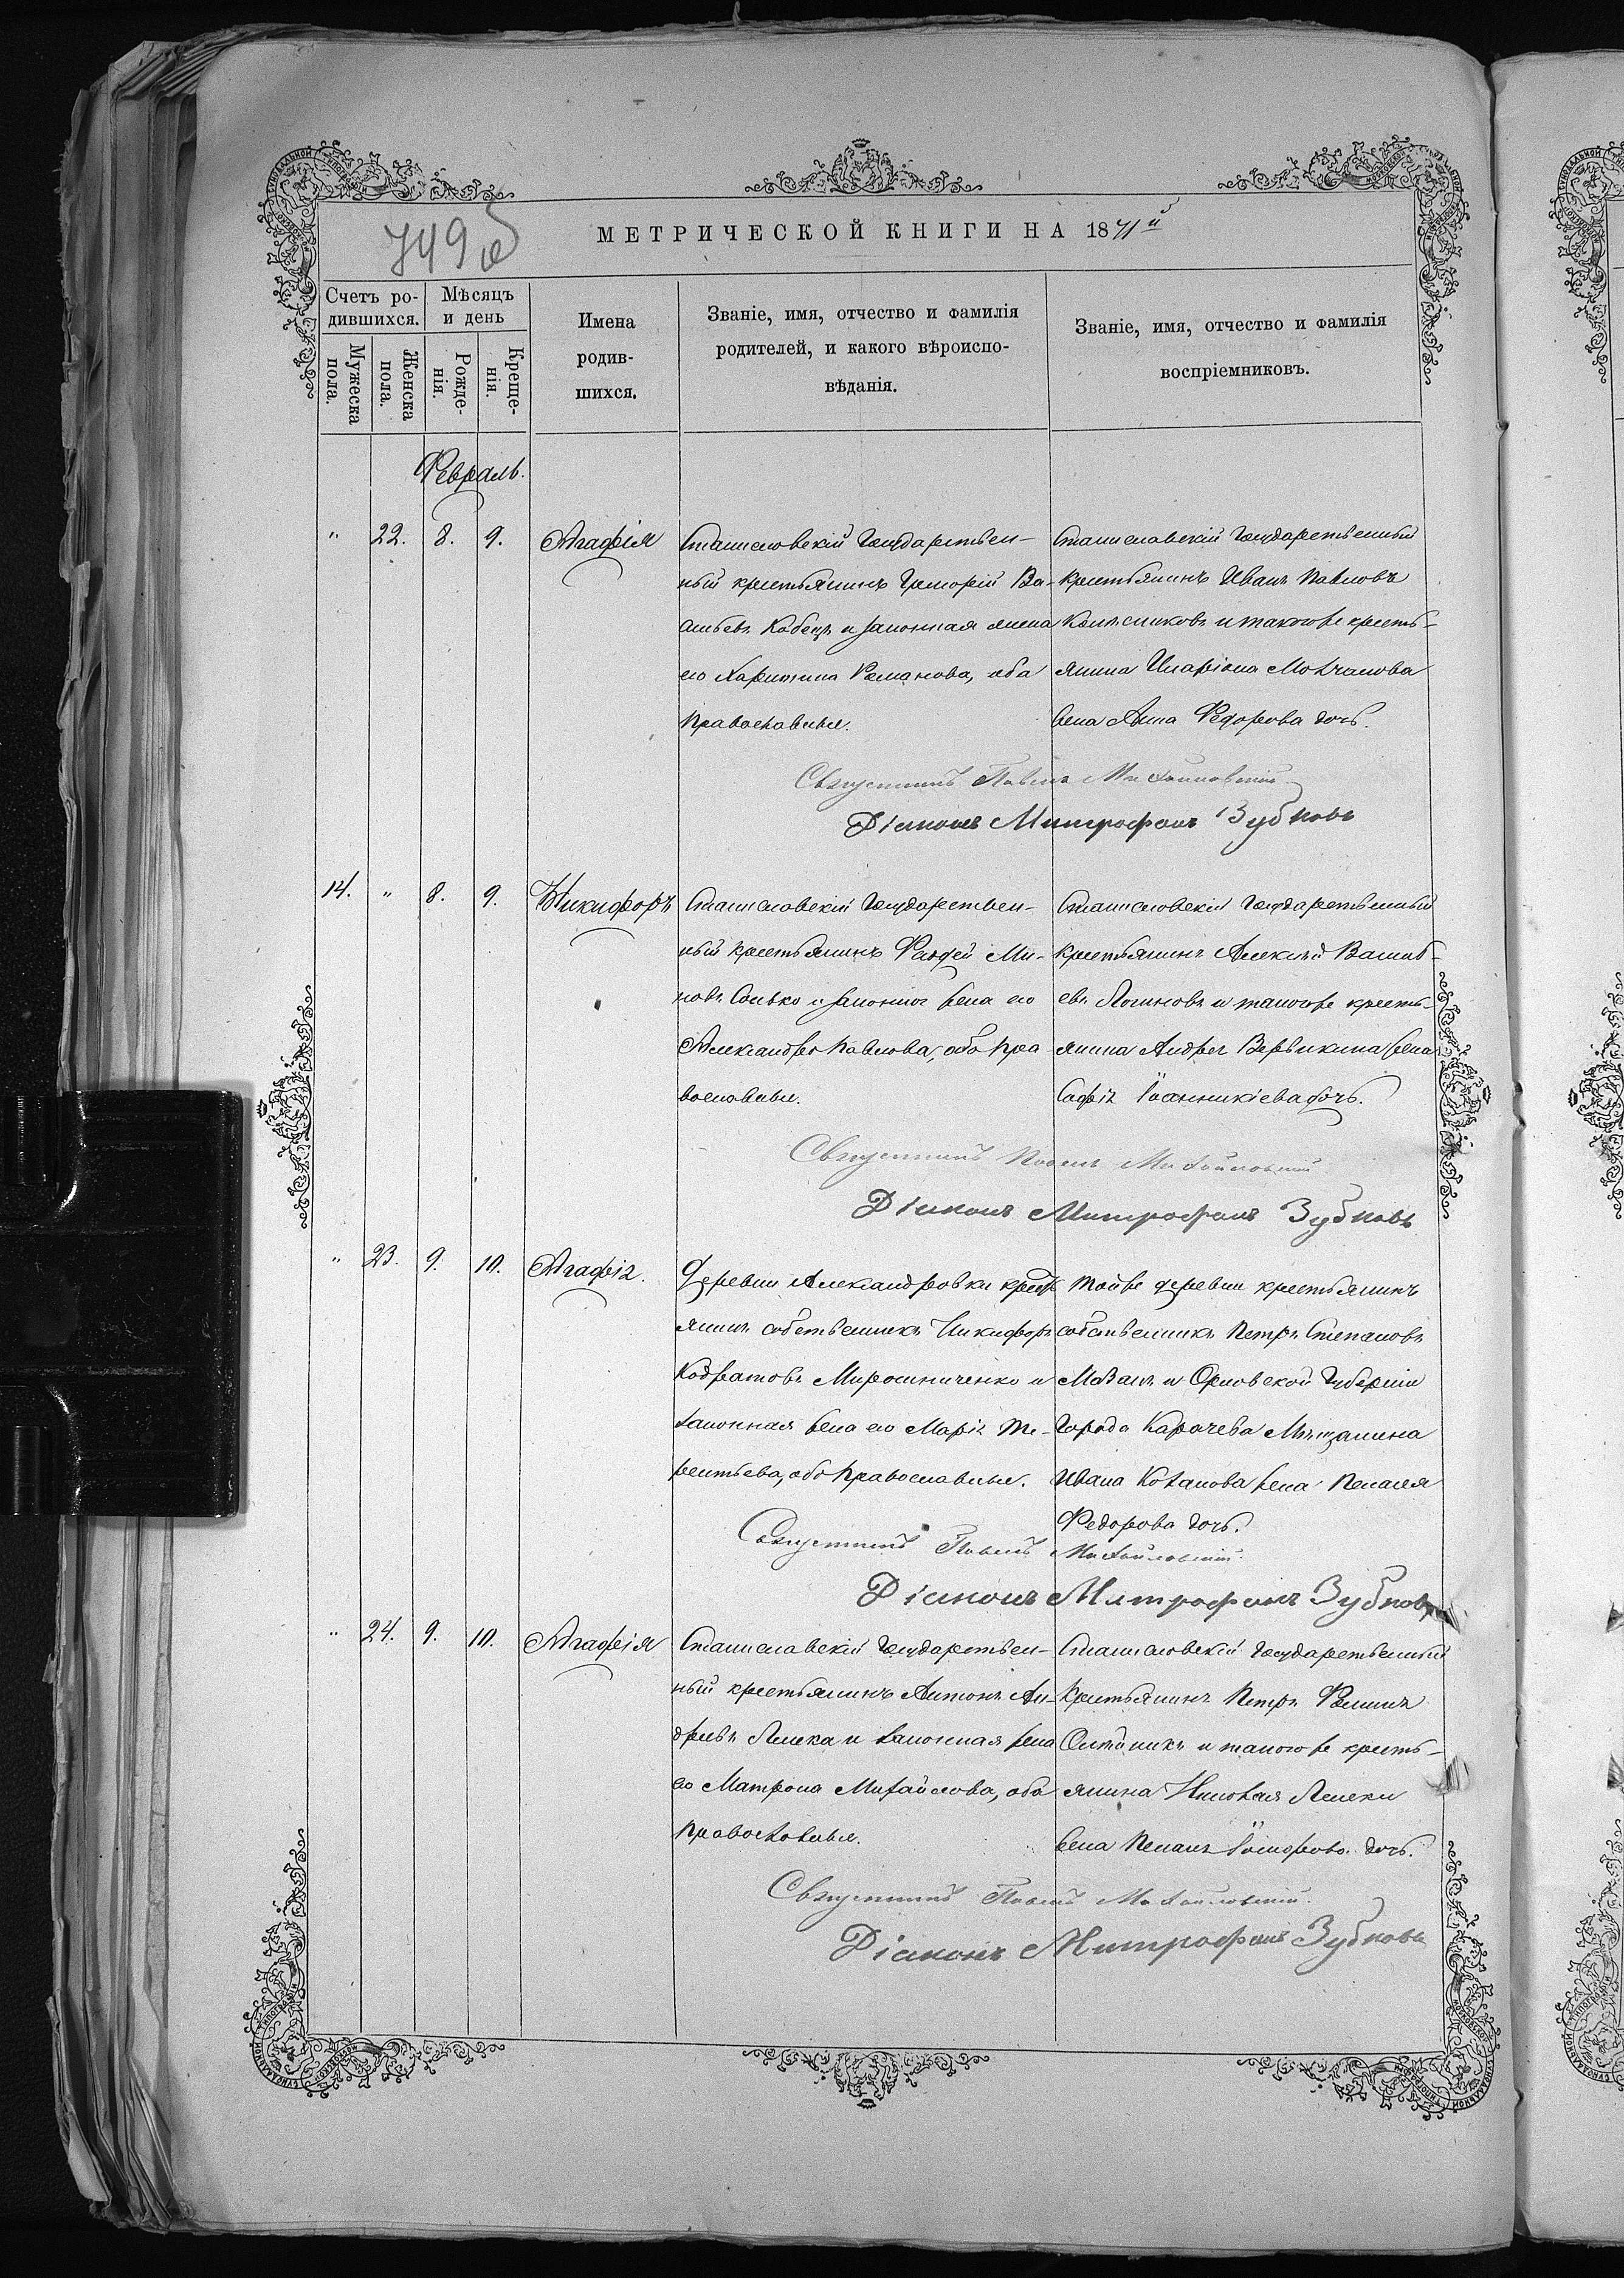 749 об
МЕТРИЧЕСКОЙ КНИГИ НА 1871й
Счетъ ро-
дившихся.
Мужеска пола.
Женска пола.
Мѣсяцъ
и день
Рожде-
нія.
Креще-
нія.
Имена
родив-
шихся.
Званіе, имя, отчество и фамилія
родителей, и какого вѣроиспо-
вѣданія.
Званіе, имя, отчество и фамилія
воспріемниковъ.
Февраль.
" 22. 8. 9. Агафія
Станиславскій Государствен-
ный крестьянинъ Григорій Ва-
сильевъ Кобецъ и законная жена
его Харитина Романова, оба
православные.
Станиславскій Государственный
крестьянинъ Иванъ Павловъ
Колесниковъ и такогоже кресть-
янина Иларіона Молчанова
жена Анна Федорова дочь.
Священникъ Павелъ Михайловскій
Діаконъ Митрофанъ Зубковъ
14. " 8. 9. Никифоръ
Станиславскій Государствен-
ный крестьянинъ Фадей Ми-
новъ и законная жена его
Александра Павлова, оба пра
вославные.
Станиславскій Государственный
крестьянинъ Алексѣй Василь-
евъ Логиновъ и такогоже кресть-
янина Андрея Веревкина жена
Софія Іоанникіева дочь.
Священникъ Павелъ Михайловскій
Діаконъ Митрофанъ Зубковъ
" 23. 9. 10. Агафія.
Деревни Александровки кресть
янинъ собственникъ Никифоръ
Кодратовъ Мирошниченко и
законная жена его Марія Те-
рентьева, оба православные.
Тойже деревни крестьянинъ
собственникъ Петръ Степановъ
и Орловской Губерніи
Города Карачева Мѣщанина
Ивана жена Пелагея
Федорова дочь.
Священникъ Павелъ Михайловскій.
Діаконъ Митрофанъ Зубковъ
" 24. 9. 10. Агафія
Станиславскій Государствен-
ный крестьянинъ Антонъ Ан-
дреевъ Лелека и законная жена
его Матрона Михайлова, оба
православные.
Станиславскій Государственный
Крестьянинъ Петръ Фоминъ
и такогоже кресть-
янина Николая Лелеки
жена Пелагія дочь.
Священникъ Павелъ Михайловскій.
Діаконъ Митрофанъ Зубковъ